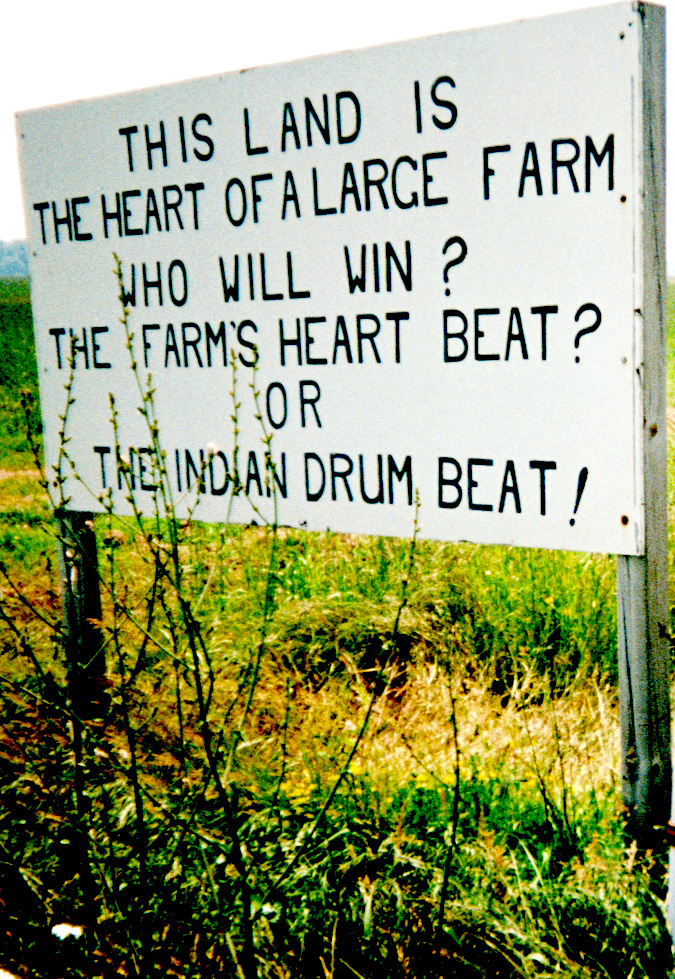 THIS LAND IS
THE HEART OF A LARGE FARM
WHO WILL WIN ?
THE FARM'S HEART BEAT ?
OR
THE INDIAN DRUM BEAT !